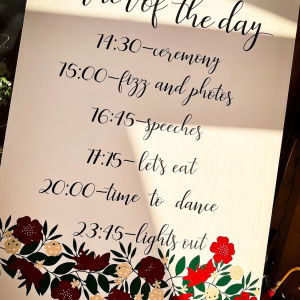 of the day
14:30-ceremony
15:00-fizz and photos
16:45-speeches
17:15-let's eat
20:00-time to dance
23:45-lights out